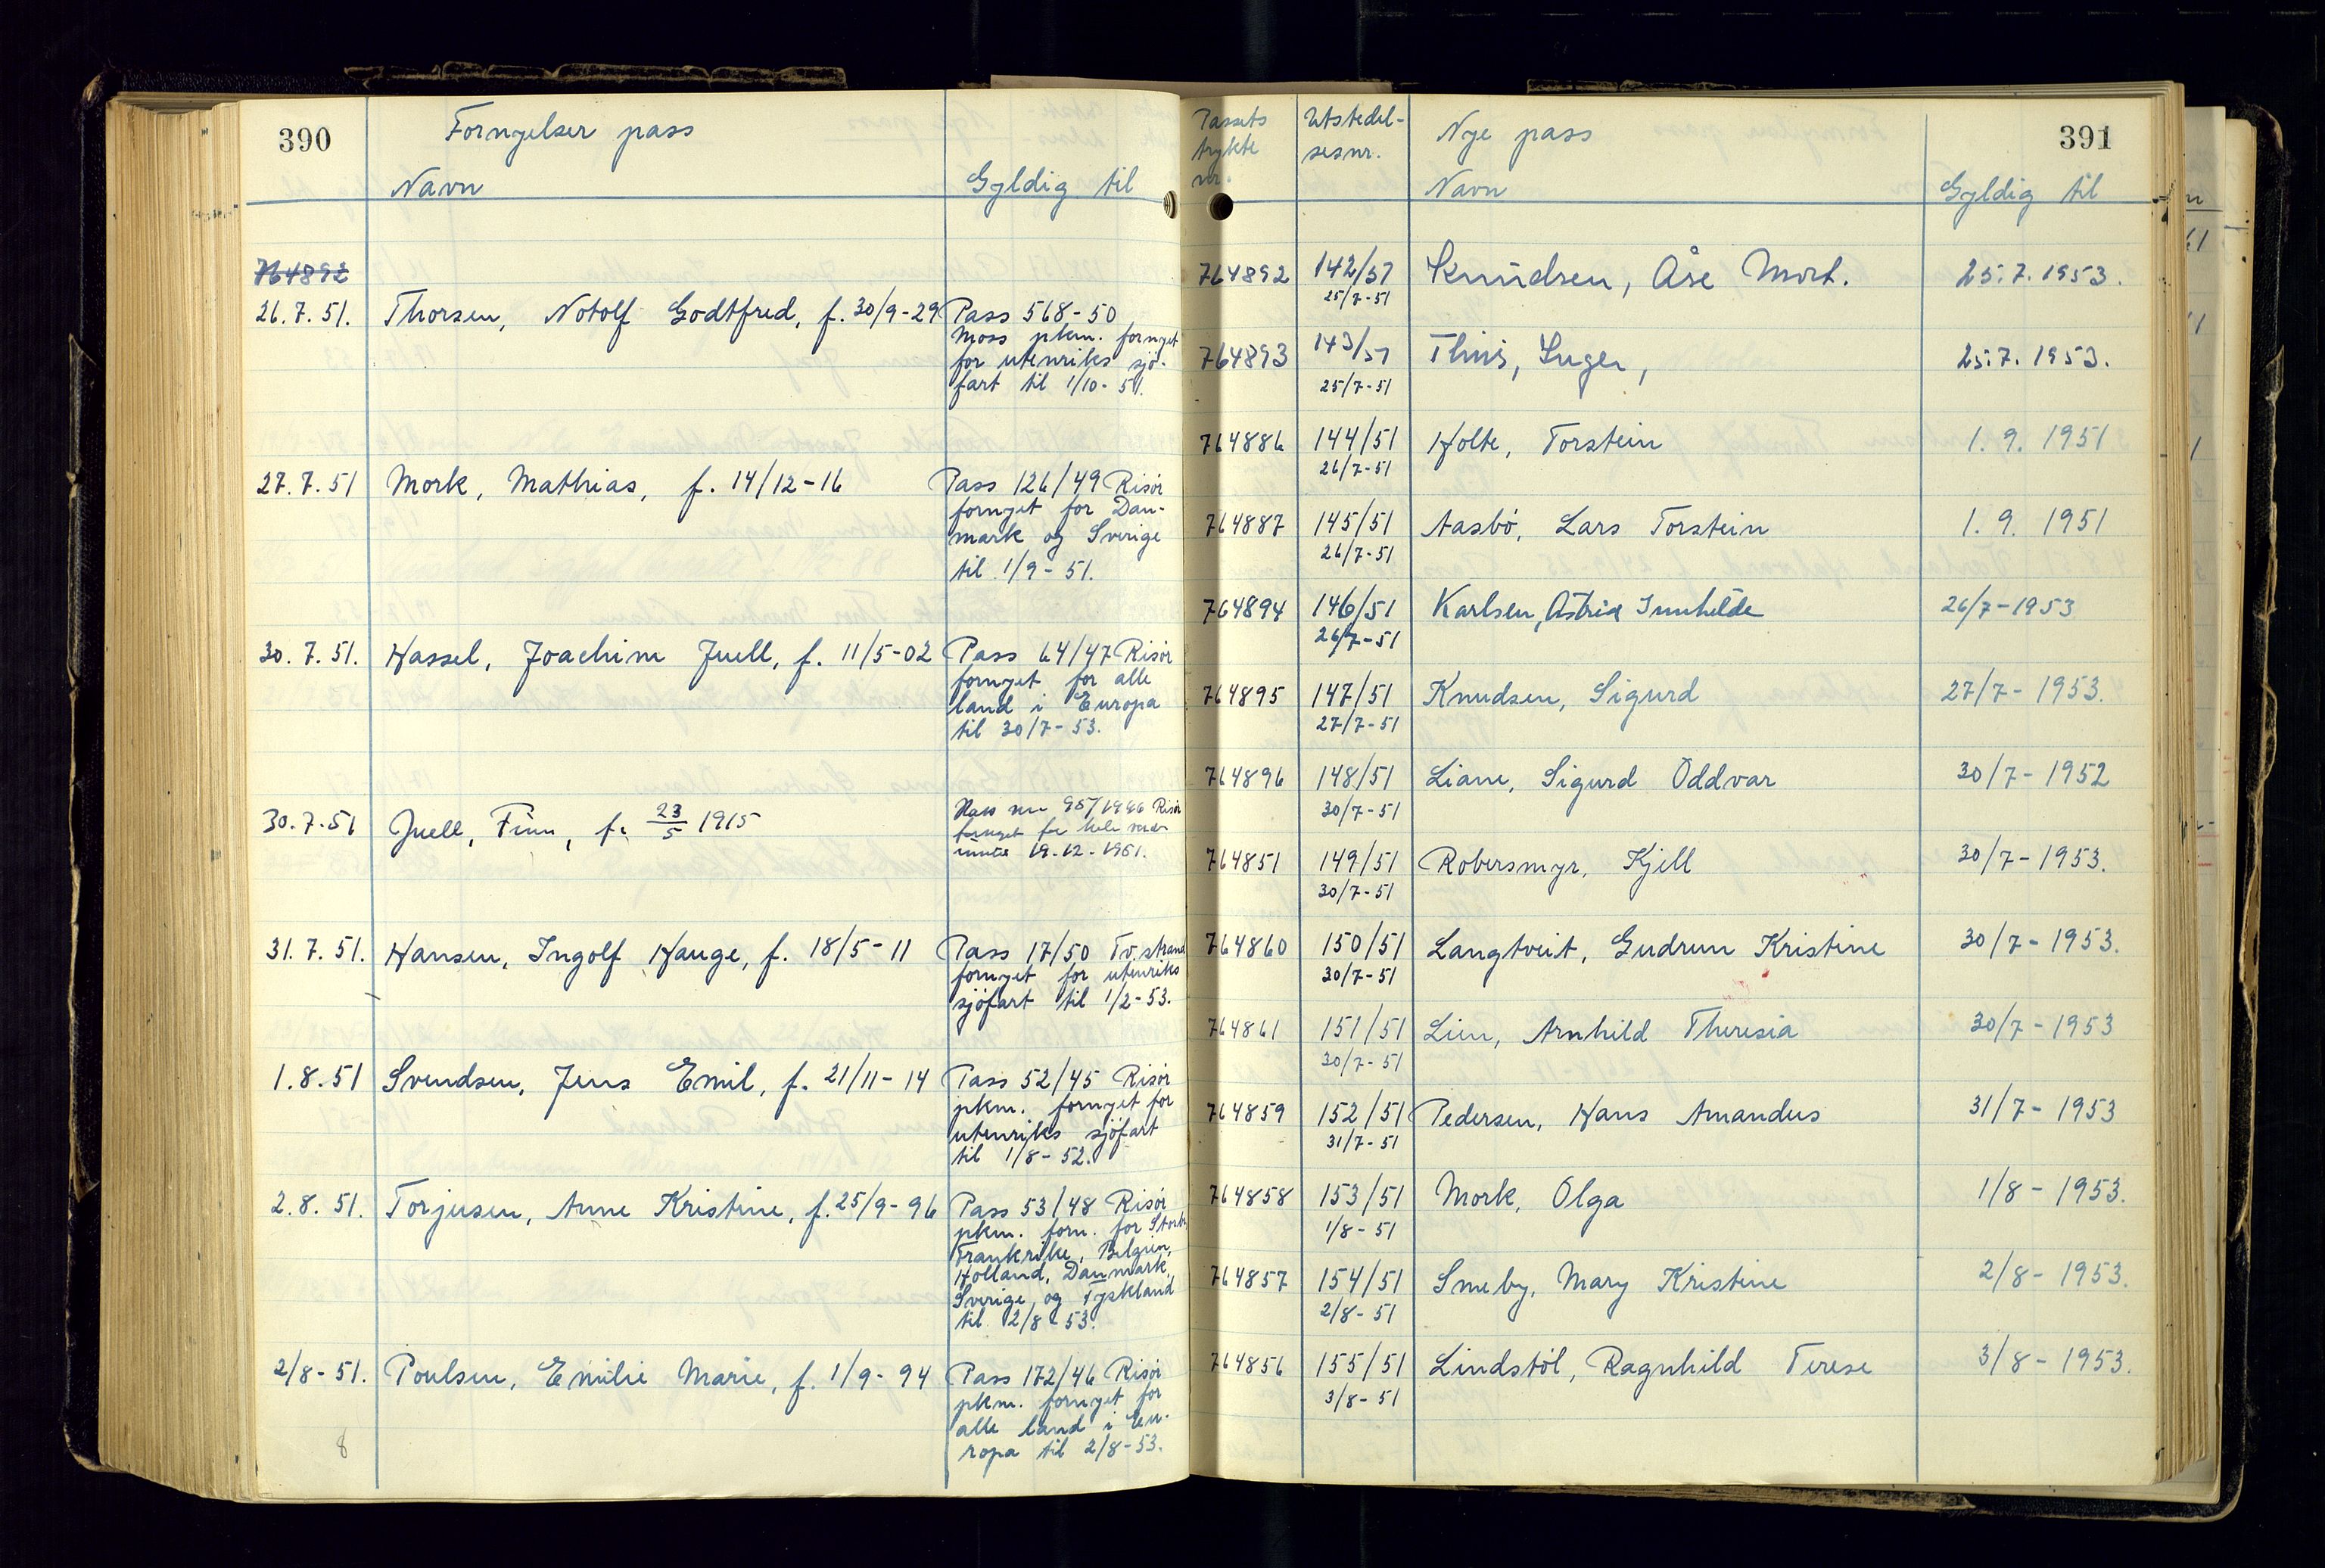 390
Fornyelser pass
Navn
Gyldig til
764892
26.7.51. Thorsen, Notolf Godtfred, f. 30/9-29 Pass 568-50
Moss pkm. fornyet
for utenriks sjö-
fart til 1/10-51.
27.7.51 Mork, Mathias, f. 14/12-16 Pass 126/49 Risör
fornyet for Dan-
mark og Sverige
til 1/9-51.
30.7.51. Hassel, Joachim Juell, f. 11/5-02 Pass 64/47 Risör
fornyet for alle
land i Europa
til 30/7-53.
30.7.51 Juell, Finn, f. 23/5 1915 Pass Risör
fornyet for hele
19-12-1951.
31.7.51. Hansen, Ingolf Hauge, f. 18/5-11 Pass 17/50 Tv.strand
fornyet for utenriks
sjöfart til 1/2-53.
1.8.51 Svendsen, Jens Emil, f. 21/11-14 Pass 52/45 Risör
pkm. fornyet for
utenriks sjöfart
til 1/8-52.
2.8.51. Torjusen, Anne Kristine, f. 25/9-96 Pass 53/48 Risör
pkm. forn. for Storbr
Frankrike, Belgien,
Holland, Danmark,
Sverige, og Tyskland
til 2/8-53.
2/8-51. Poulsen, Emilie Marie, f. 1/9-94 Pass 172/46 Risör
pkm. fornyet for
alle land i Eu-
ropa til 2/8-53.
8
391
Passets
trykte
nr.
Utstedel-
sesnr.
Nye pass
Navn
Gyldig til
764892 142/51 Knudsen, Åse Mort. 25.7.1953.
25/7-51
764893 143/51 Inger, 25.7.1953.
25/7-51
764886 144/51 Holte, Torstein 1.9.1951
26/7-51
764887 145/51 Aasbö, Lars Torstein 1.9.1951
26/7-51
764894 146/51 Karlsen, Astrid 26/7-1953
26/7-51
764895 147/51 Knudsen, Sigurd 27/7-1953.
27/7-51
764896 148/51 Liane, Sigurd Oddvar 30/7-1952
30/7-51
764851 149/51 Robersmyr, Kjell 30/7-1953.
30/7-51
764860 150/51 Langtveit, Gudrun Kristine 30/7-1953.
30/7-51
764861 151/51 Lien, Arnhild Theresia 30/7-1953
30/7-51
764859 152/51 Pedersen, Hans Amandus 31/7-1953
31/7-51
764858 153/51 Mork, Olga 1/8-1953.
1/8-51
764857 154/51 Smeby, Mary Kristine 2/8-1953.
2/8-51
764856 155/51 Lindstöl, Ragnhild Terese 3/8-1953.
3/8-51